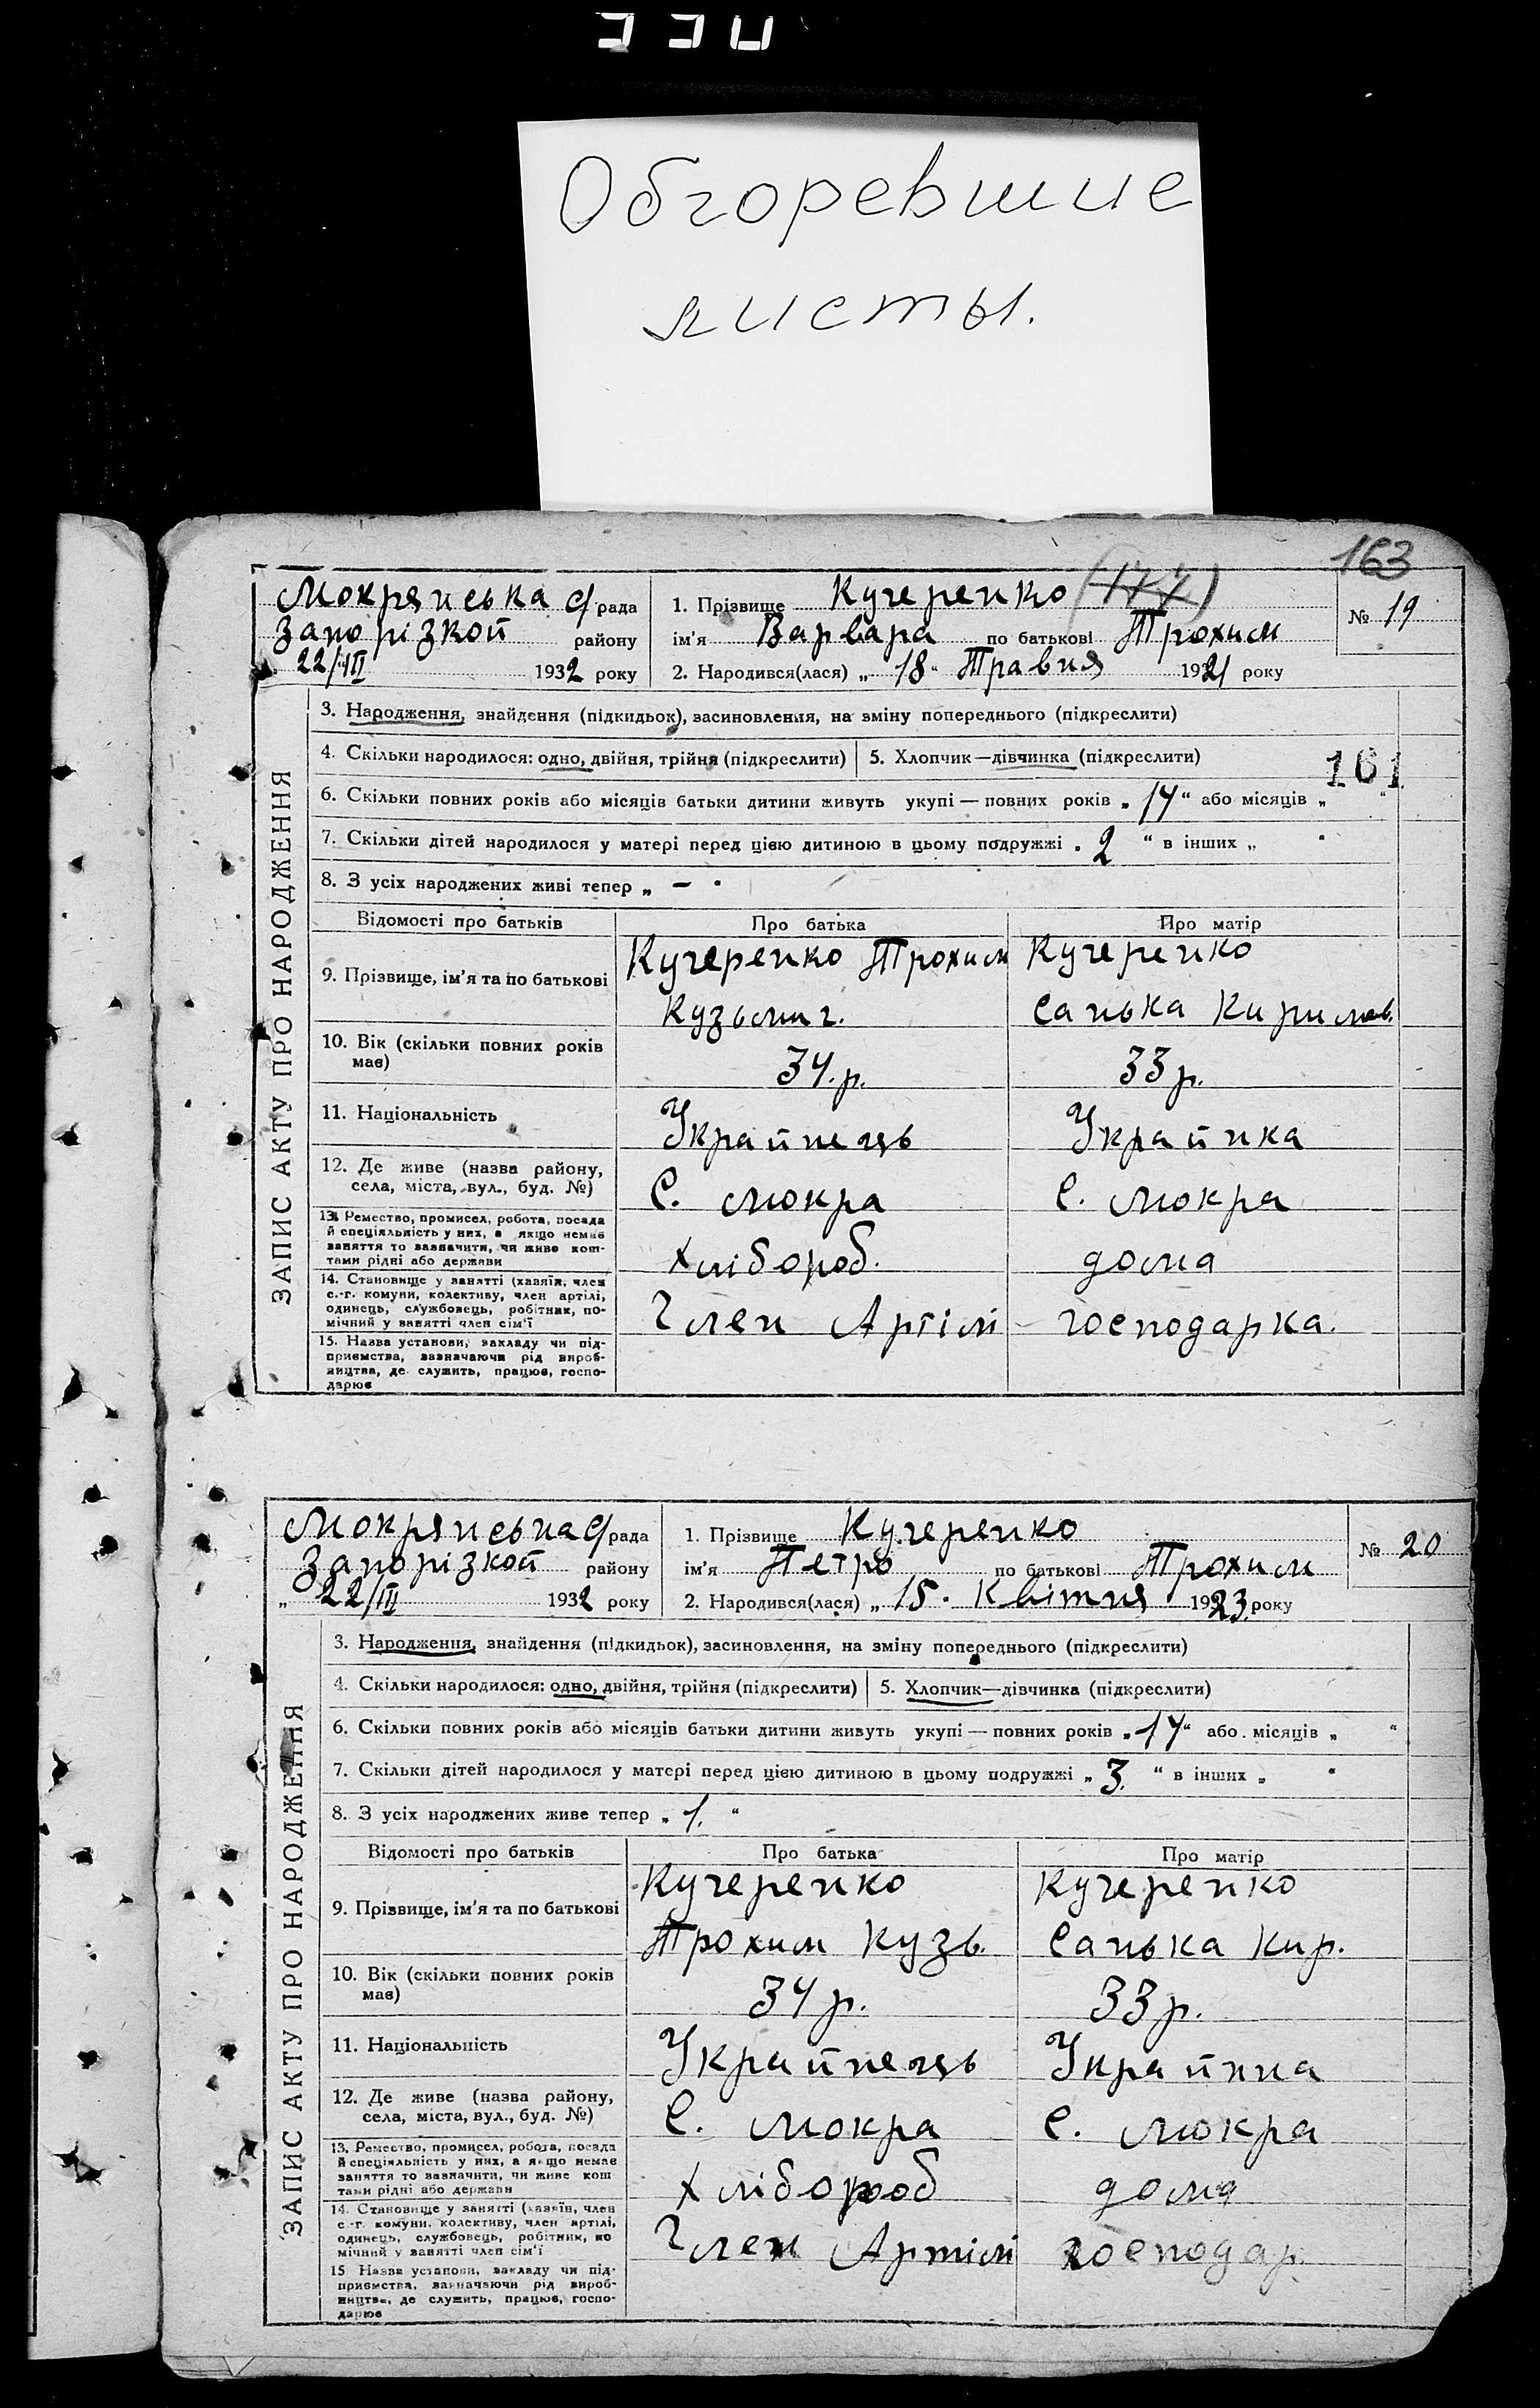 Обгоревшие
листы.
163
Мокрянська с/рада
Запорізкой району
22/III 1932 року
1. Прізвище Кучеренко (177)
ім'я Варвара по батькові Трохим
2. Народився(лася) „18" Травня 1921 року
№ 19
ЗАПИС АКТУ ПРО НАРОДЖЕННЯ
3. Народження, знайдення (підкидьок), засиновлення, на зміну попереднього (підкреслити)
4. Скільки народилося: одно, двійня, трійня (підкреслити) 5. Хлопчик—дівчинка (підкреслити)
161
6. Скільки повних років або місяців батьки дитини живуть укупі — повних років „14" або місяців „ "
7. Скільки дітей народилося у матері перед цією дитиною в цьому подружжі „2" в інших „ "
8. З усіх народжених живі тепер „ — "
Відомості про батьків Про батька Про матір
9. Прізвище, ім'я та по батькові
Кучеренко Трохим
Кузьмич.
Кучеренко
Санька Кирилов.
10. Вік (скільки повних років
має)
34.р.
33р.
11. Національність
Українець
Українка
12. Де живе (назва району,
села, міста, вул., буд. №)
С. Мокра
С. Мокра
13. Ремество, промисел, робота, посада
й спеціяльність у них, а якщо немає
заняття то зазначити, чи живе кош-
тами рідні або держави
Хлібороб.
дома
14. Становище у занятті (хазяїн, член
с.-г. комуни, колективу, член артілі,
одинець, службовець, робітник, по-
мічний у занятті член сім'ї
Член Артілі
господарка.
15. Назва установи, закладу чи під-
приємства, зазначаючи рід вироб-
ництва, де служить, працює, госпо-
дарює
Мокрянська с/рада
Запорізкой району
„22/III 1932 року
1. Прізвище Кучеренко
ім'я Петро по батькові Трохим
2. Народився(лася) „15. Квітня 1923. року
№ 20
ЗАПИС АКТУ ПРО НАРОДЖЕННЯ
3. Народження, знайдення (підкидьок), засиновлення, на зміну попереднього (підкреслити)
4. Скільки народилося: одно, двійня, трійня (підкреслити) 5. Хлопчик—дівчинка (підкреслити)
6. Скільки повних років або місяців батьки дитини живуть укупі — повних років „14" або місяців „ "
7. Скільки дітей народилося у матері перед цією дитиною в цьому подружжі „3." в інших „ "
8. З усіх народжених живе тепер „1."
Відомості про батьків Про батька Про матір
9. Прізвище, ім'я та по батькові
Кучеренко
Трохим Кузь.
Кучеренко
Санька Кир.
10. Вік (скільки повних років
має)
34р.
33р.
11. Національність
Українець
Українка
12. Де живе (назва району,
села, міста, вул., буд. №)
С. Мокра
С. Мокра
13. Ремество, промисел, робота, посада
й спеціяльність у них, а якщо немає
заняття то зазначити, чи живе кош
тами рідні або держави
Хлібороб
дома
14. Становище у занятті (хазяїн, член
с.-г. комуни, колективу, член артілі,
одинець, службовець, робітник, по
мічний у занятті член сім'ї
Член Артілі
господар.
15 Назва установи, закладу чи під-
приємства, зазначаючи рід вироб-
ництва, де служить, працює, госпо-
дарює